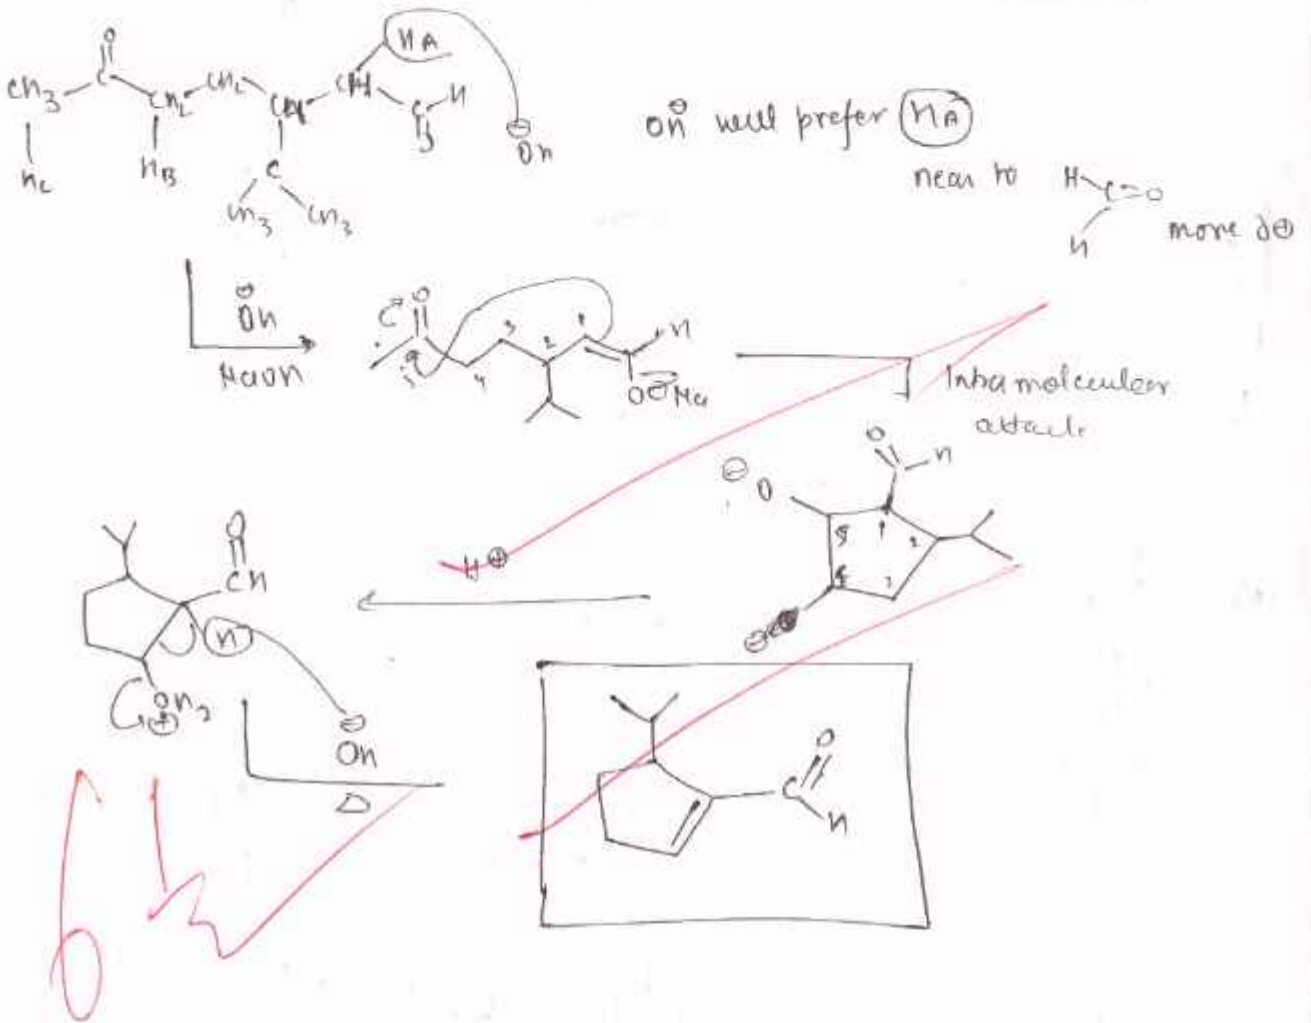 O
CH3 C CH2 CH2 CH CH HA
C H
O
HC HB C
CH3 CH3
⊖
OH
OH⊖ will prefer HA
near to H C=O
H
more δ⊕
⊖
OH
NaOH
O
1 2 3 4 5
H
O⊖Na
Intramolecular
attack
⊖
O
O
H
5 1 2
4 3
H⊕
O
CH
H
OH2
⊕
⊖
OH
Δ
O
C
H
6